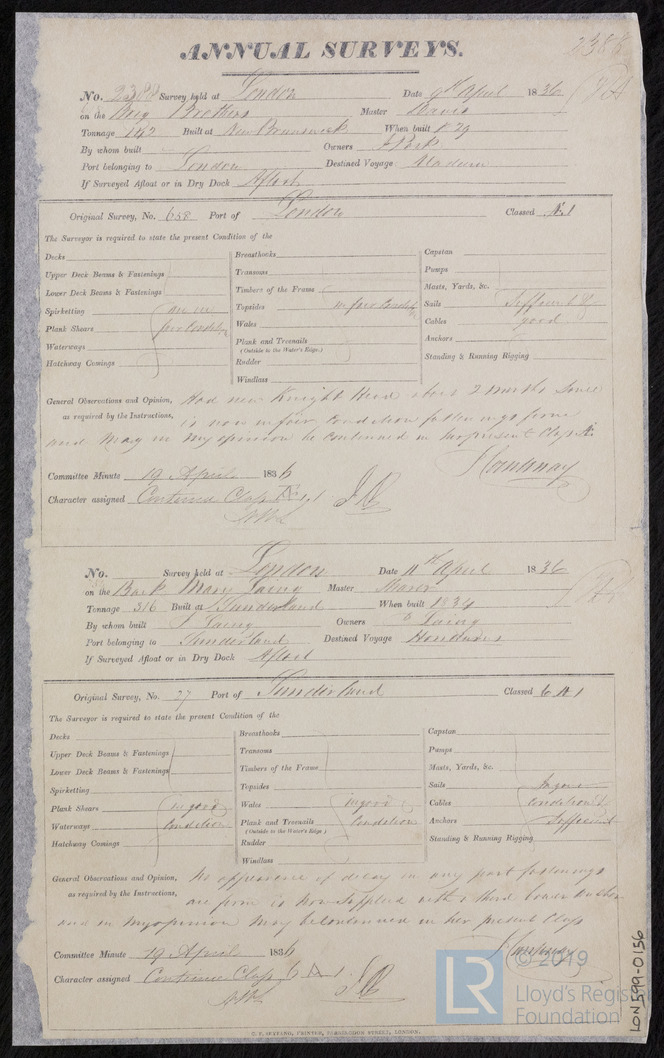 2388
ANNUAL SURVEYS.
No. 2388 Survey held at London Date 9th April 1836
on the Brig Brothers Master Davis
Tonnage 142 Built at New Brunswick When built 1829
By whom built Owners
Port belonging to London Destined Voyage Madeira
If Surveyed Afloat or in Dry Dock Afloat
Original Survey, No. 658 Port of London Classed Æ 1
The Surveyor is required to state the present Condition of the
Decks Breasthooks Capstan
Upper Deck Beams & Fastenings Transoms Pumps
Lower Deck Beams & Fastenings Timbers of the Frame Masts, Yards, &c.
Spirketting are in Topsides in fair Condition Sails Sufficient &
Plank Shears fair Condition Wales Cables good
Waterways Plank and Treenails Anchors
(Outside to the Water's Edge.)
Hatchway Comings Rudder Standing & Running Rigging
Windlass
General Observations and Opinion, Had new Knight Head about 2 months since
as required by the Instructions, is now in fair Condition fastenings firm
and may in my opinion be continued in her present Class Æ
Committee Minute 19 April 1836
Character assigned Continued Class Æ 1
No. Survey held at London Date 11th April 1836
on the Bark Mary Laing Master
Tonnage 316 Built at Sunderland When built 1834
By whom built Laing Owners Laing
Port belonging to Sunderland Destined Voyage Honduras
If Surveyed Afloat or in Dry Dock Afloat
Original Survey, No. 77 Port of Sunderland Classed 6 A 1
The Surveyor is required to state the present Condition of the
Decks Breasthooks Capstan
Upper Deck Beams & Fastenings Transoms Pumps
Lower Deck Beams & Fastenings Timbers of the Frame Masts, Yards, &c.
Spirketting Topsides Sails In good
Plank Shears in good Wales in good Cables Condition &
Waterways Condition Plank and Treenails Condition Anchors Sufficient
(Outside to the Water's Edge)
Hatchway Comings Rudder Standing & Running Rigging
Windlass
General Observations and Opinion, No appearance of decay in any part fastenings
as required by the Instructions, are firm is now supplied with a third bower anchor
and in my opinion may be continued in her present Class
Committee Minute 19 April 1836
Character assigned Continued Class 6 A 1
C. F. SEYFANG, PRINTER, FARRINGDON STREET, LONDON.
LR © 2019
Lloyd's Register
Foundation
LON 599-0156